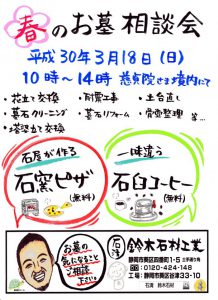 春のお墓相談会
平成30年3月18日(日)
10時～14時 慈貞院さま境内にて
・花立て交換 ・耐震工事 ・土台直し
・墓石クリーニング ・墓石リフォーム ・骨壺整理
・塔婆立て交換 等…
石屋が作る
石窯ピザ
(無料)
一味違う
石臼コーヒー
(無料)
お墓の
気になること
ご相談
下さい。
石清
鈴木石材工業
静岡市葵区四番町1-5
0120-424-148
工場 静岡市葵区谷津33-10
石清 鈴木石材